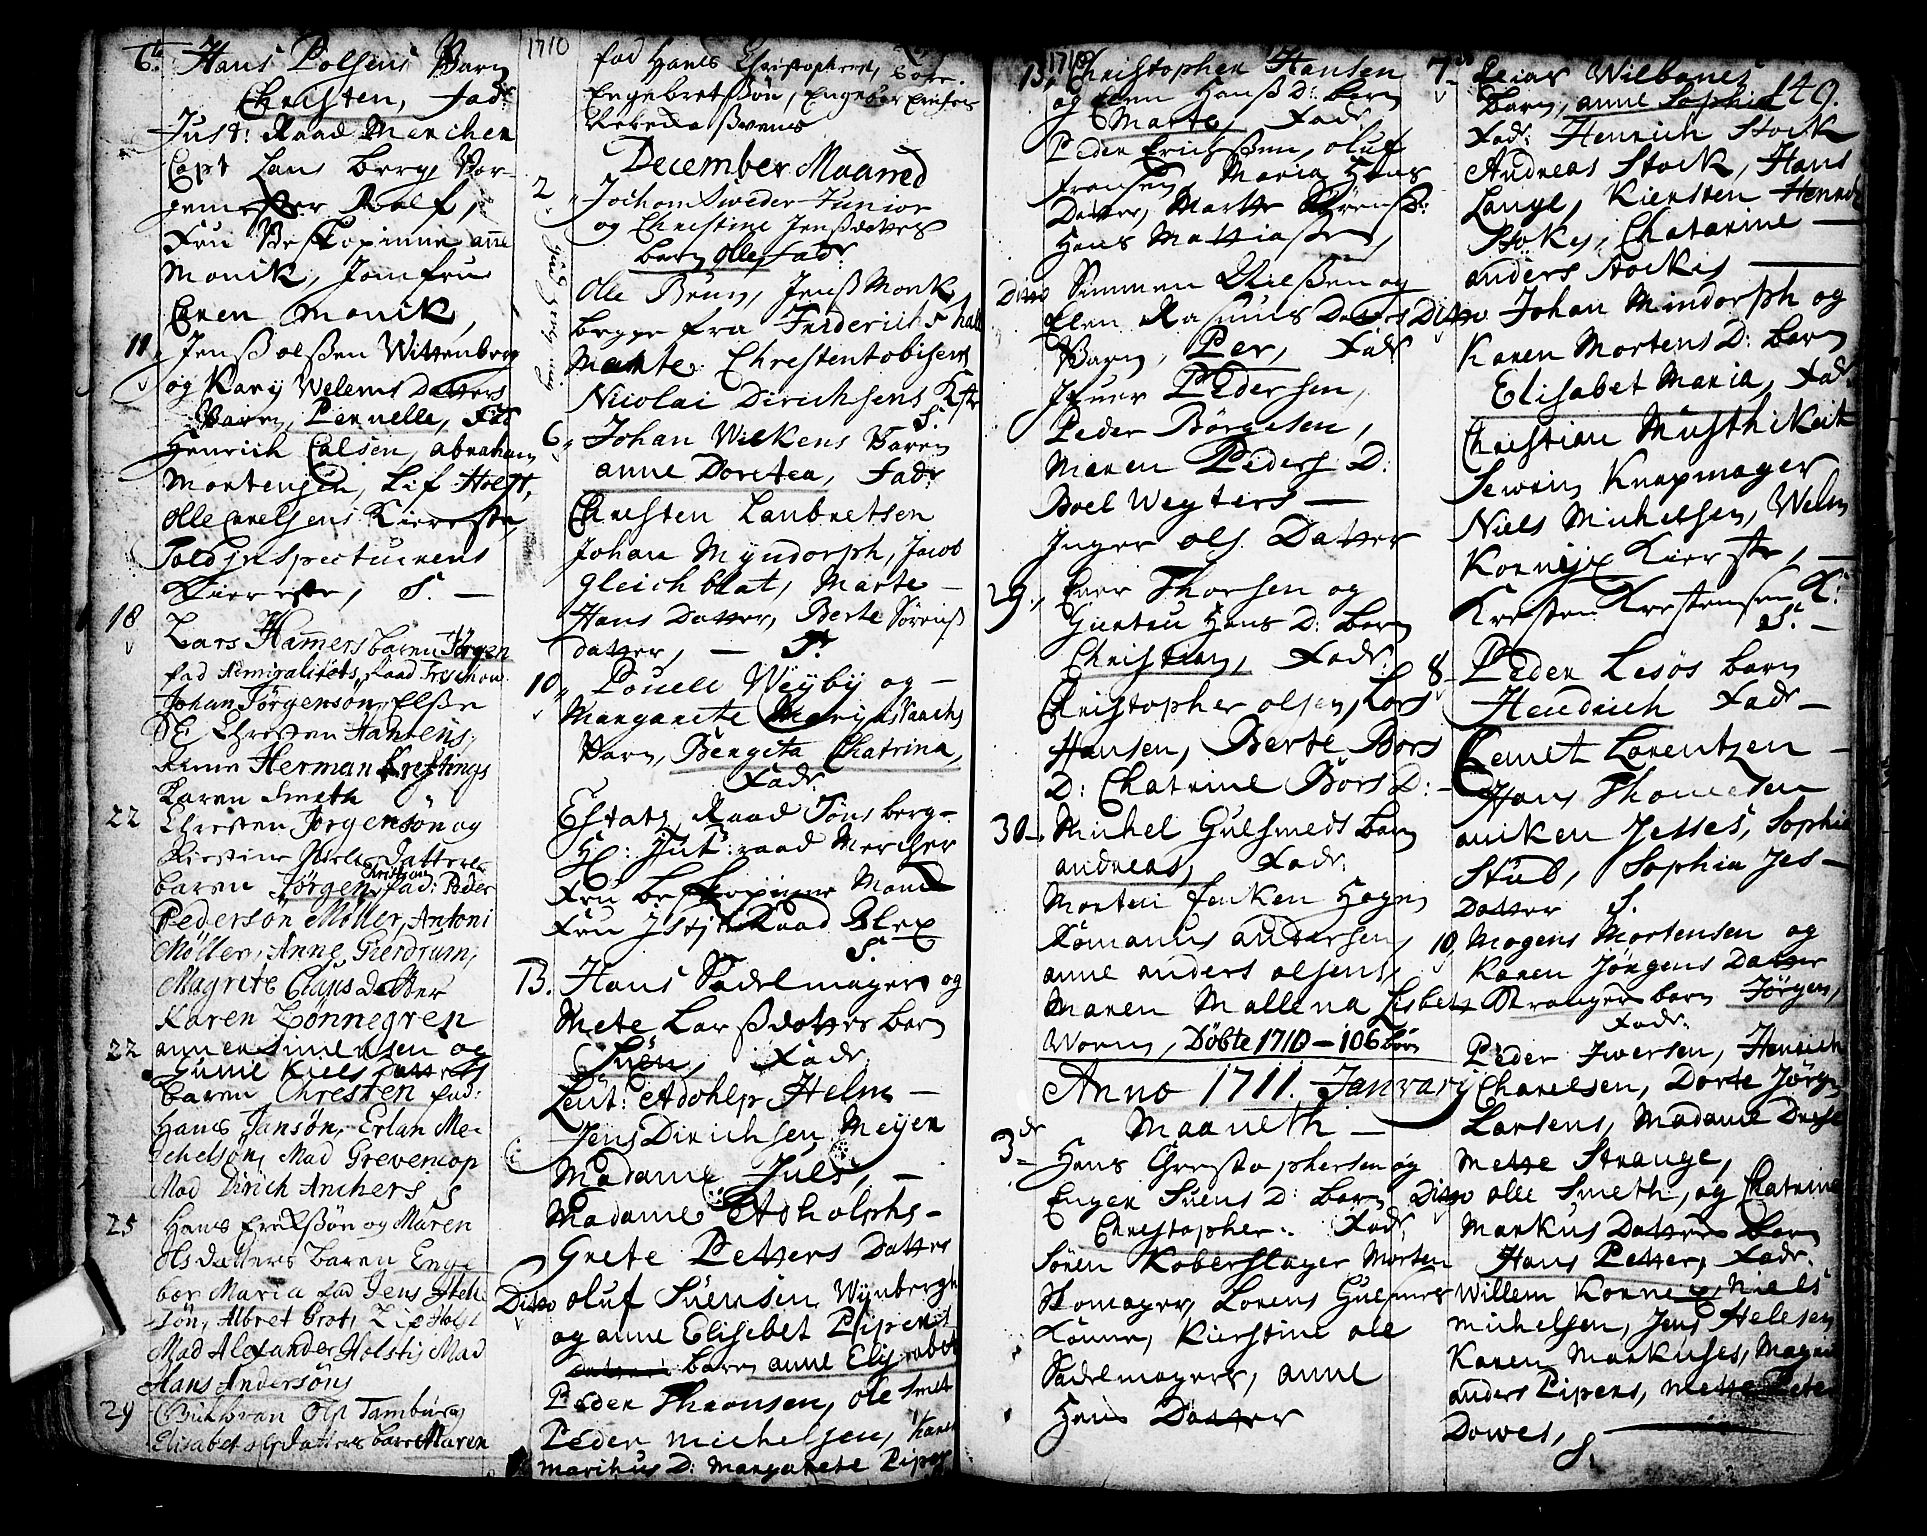 6. Hans Polsens Barn
Christen, Fadr
Just: Raad Mercher
Capt Lans Berg, Bor-
gemester Ralf,
Fru Beskopinne anne
Monik, Jomfru
Caren Monik,
11. Jenss olssen Wittenberg
og Karij Welems Datters
Barn, Pernelle, Fad
Henrich Calsen, abraham
Mortensen, Lif Holst,
olle Carelsens Kiereste,
Toldjnspecteurens
Kiereste, S.
18 Lars Hamers baren Jørgen
fad Admiralitets Raad
Johan Jørgensøn, Elsse
Sl Christen Hansens,
Herman Krestings
Karen Smeth
22 Christen Jørgensøn og
Kirstine Niels Datters
baren Jørgen Christian, fad: Peder
Pedersøn Møller, Antoni
Møller, Anne Gierdrum,
Magrete Claus Datter
Karen Lønnegren
22 anners Simensen og
Gunil Niels Datters
Baren Chresten fad:
Hans Jansøn, Erlan Me-
chelsøn, Mad Grevencop
Mad Dirich Anchers S
25 Hans Erickssøn og Maren
Olsdatters baren Enge
bor Maria fad Jens
søn, Albret Grot, Lip Holst
Mad Alexander Holstis Mad
Hans Andersøns
29 Olp Tambürs
Elisabet barn Maren
1710
fad Hans Christophersen, Søre.
Engebretssøn, Engebor
Rebecka Swens
December Maaned
2 Jochom Sweder Junior
og Christine Jenssdatters
barn olle fadr
Olle Brun, Jenss Monk
begge fra Friderichshall
Marte Chrestentobisens
Nicolai Dirichsens Kste
S.
6. Johan Wilkens Baren
anne Doretea, Fadr
Christen Laubretsen
Johan Myndorph, Jacob
Gleichblat, Marte
Hans Datter, Berte Sørenss
datter, S.
10. Pouell Weyby og
Margarete Marija
Barn, Bengeta Chatrina,
Fadr.
Estatz Raad Tønsberg
H: Just: raad Mercher
Fru Beskopinne Monik
Fru Raad Blex
S.
13. Hans Sadelmager og
Mete Larssdatters barn
Suen, Fadr
Leut: Adohlp Helm
Jens Dirichsen Meyer
Madame Juels,
Madame Adholphs
Grete Petters Datter
Ditto oluf Suensen Wijnbergh
og anne Elisebet Pipers
barn anne Elisabet
Peder Thaansen, ole Smet
Peder Michelsen,
Marchus D: Margarete Pipers
1710
13. Christopher Hansen
og Elen Hanss D: Barn
Marte, Fadr
Peder Erichssen, oluf
Fransen, Maria Hans
Datter, Marte Sørenss:
Hans Mattiasen,
Ditto Simmen Nilssen og
Elen Rasmus Datters
Barn, Per, Fadr
Jfuer Pedersen,
Peder Børgesen,
Maren Peders D:
Boel Weyters
Jnger ols Datter
29. Euer Thorsen og
Guntru Hans D: Barn
Christian, Fadr:
Christopher olsen, Lors
Hansen, Berte Bors
D: Chatrine Børs D:
30. Michel Gulsmeds Barn
andreas, Fadr
Morten Hagn
Romanus andersen,
anne anders olsens,
Maren Mallena Lisbet
Worm, Døbte 1710 - 106 børn
Anno 1711. Janvarij
Maaneth
3de Hans Christophersen og
Enger Suens D: Barn
Christopher. Fadr
Sören Koberslager Morten
Skomager, Lorens Gulsmes
Könne, Kierstine ole
Sadelmagers, anne
Hans Datter
149.
7. Peiar Wilbanes
Barn, anne Sophia
Fadr Henrich Stock
Andreas Stock, Hans
Lange, Kiersten Henrich
Stokes, Chatarine
anders Stockis
Ditto Johan Mindorph og
Karen Mortens D: barn
Elisabet Maria, Fadr
Christian
Sewrin Knapmager
Niels Michelsen, Welm
Kornejx Kierste,
Kresten Krestensen K:
S.
8 Peder Lesøs barn
Hendrich Fadr
Lorentzen
Hans Thomesen
aniken Jesses, Sophia
Stub, Sophia Jes-
Datter S.
10. Mogens Mortensen og
Karen Jørgens Datter
Stranger barn Jørgen,
Fadr.
Peder Jwersen, Henrich
Charelsen, Dorte Jørgen
Larsens, Madame
Mette Strange,
Ditto olle Smeth, og Chatrine
Markus Datters Barn
Hans Petter, Fadr.
Willem Kornex, Niels
Michelsen, Jens Helesen
Karen Markuses,
anders Pipers, Mette Peter
Dowes, S.